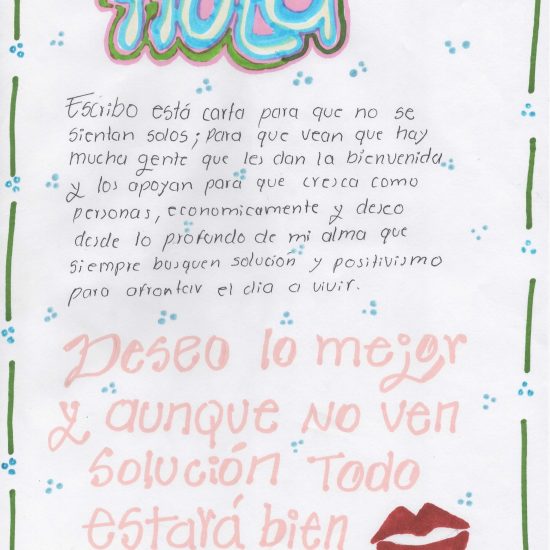 Hola
Escribo está carta para que no se
sientan solos; para que vean que hay
mucha gente que les dan la bienvenida
y los apoyan para que cresca como
personas, economicamente y deseo
desde lo profundo de mi alma que
siempre busquen solución y positivismo
para afrontar el dia a vivir.
Deseo lo mejor
y aunque no ven
solución Todo
estará bien